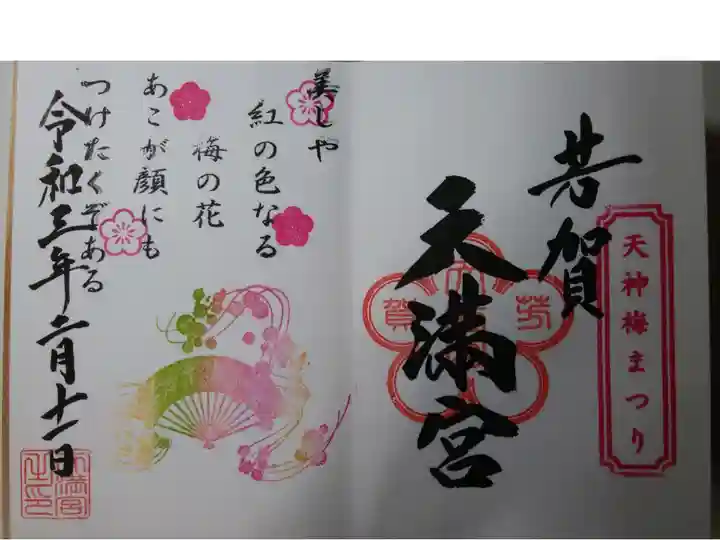 天神梅まつり
芳賀
天満宮
美しや
紅の色なる
梅の花
あこが顔にも
つけたくぞある
令和三年二月十一日